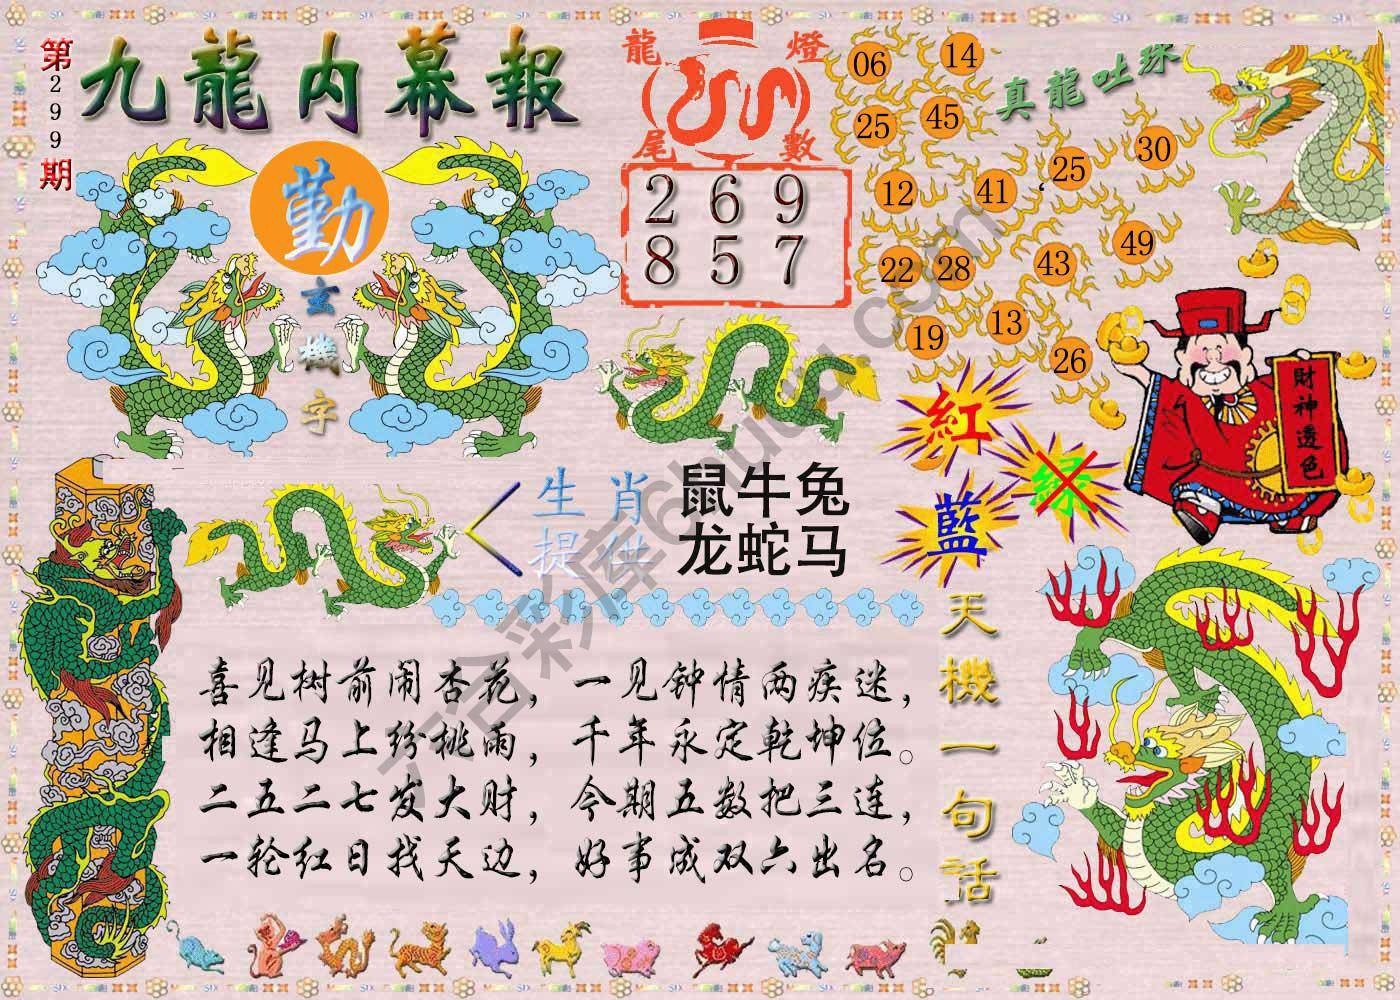 第299期
九龍内幕報
勤
玄機字
龍燈
尾數
2 6 9
8 5 7
真龍吐珠
06 14
25 45
12 41 25 30
22 28 43 49
19 13 26
財神透色
紅
綠
藍
生肖 鼠牛兔
提供 龙蛇马
天機一句话
喜见树前闹杏花，一见钟情两疾迷，
相逢马上纷桃雨，千年永定乾坤位。
二五二七发大财，今期五数把三连，
一轮红日找天边，好事成双六出名。
六合彩库6huuu.com